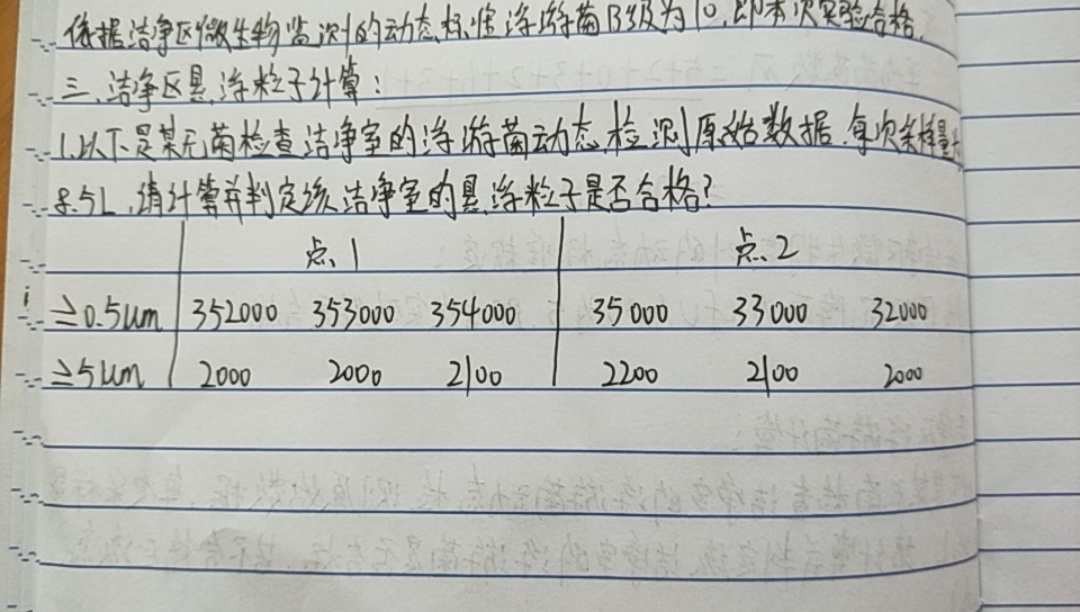 依据洁净区微生物监测的动态标准浮游菌B级为10,即本次实验合格.
三、洁净区悬浮粒子计算:
1.以下是某无菌检查洁净室的浮游菌动态检测原始数据.每次采样量
8.5L,请计算并判定该洁净室的悬浮粒子是否合格?
点1 点2
≥0.5um 352000 353000 354000 35000 33000 32000
≥5um 2000 2000 2100 2200 2100 2000